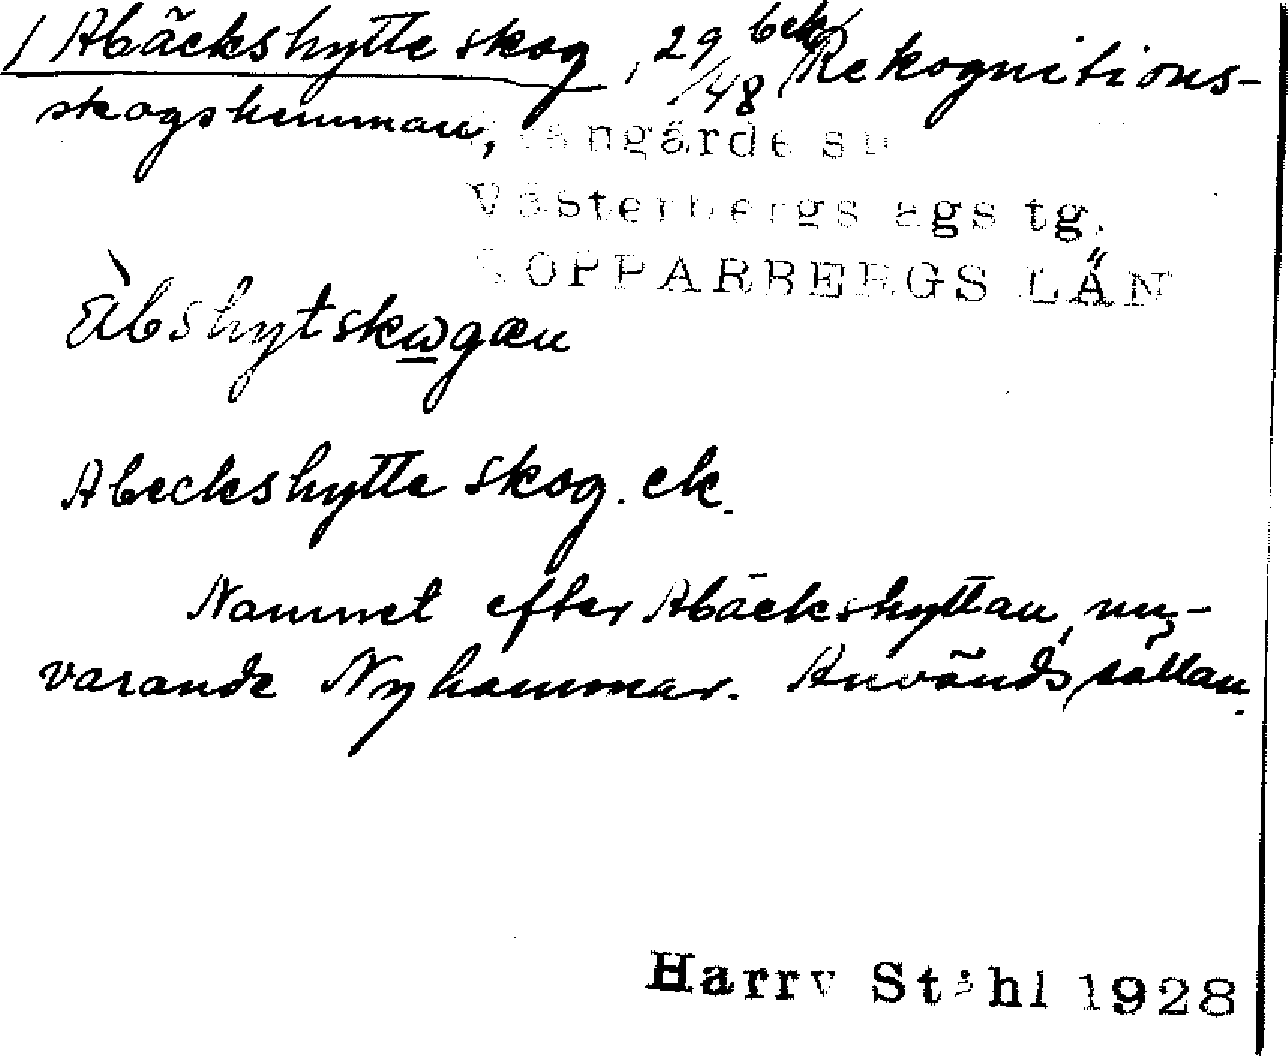 1 Abäckshytte skog, 29/48 bek Rekognitions-
skogshemman,
Grangärde sn
Västerbergslags tg.
KOPPARBERGS LÄN
àbshytskωgæn
Abeckshytte skog. ek.
Namnet efter Abäckshyttan, nu-
varande Nyhammar. Används sällan.
Harry Ståhl 1928